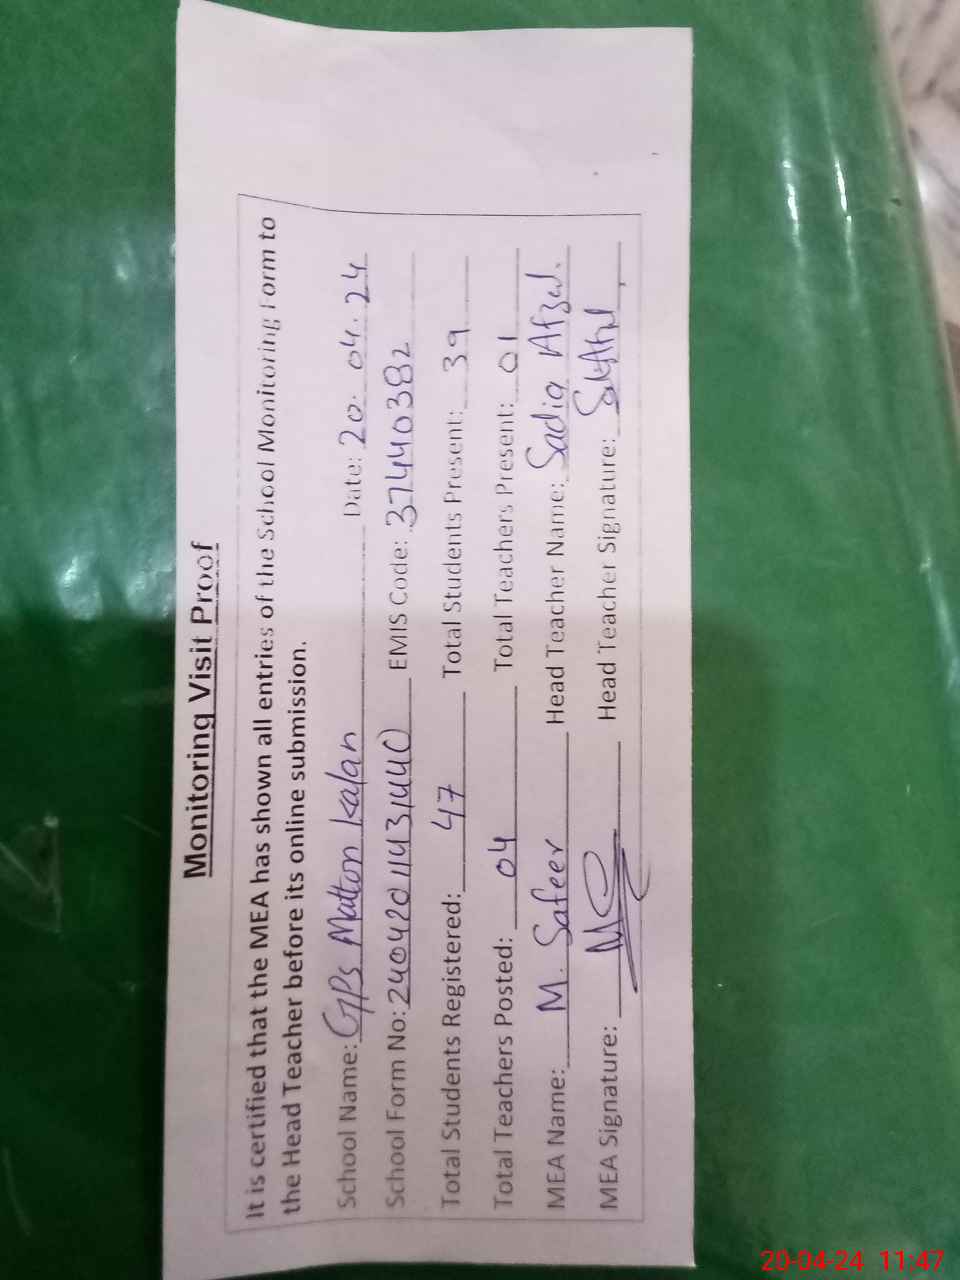 Monitoring Visit Proof
It is certified that the MEA has shown all entries of the School Monitoring Form to
the Head Teacher before its online submission.
School Name: GPS Matton Kalan Date: 20.04.24
School Form No: 24042011431440 EMIS Code: 37440382
Total Students Registered: 47 Total Students Present: 39
Total Teachers Posted: 04 Total Teachers Present: 01
MEA Name: M. Safeer Head Teacher Name: Sadia Afzal.
MEA Signature: Head Teacher Signature:
20-04-24 11:47